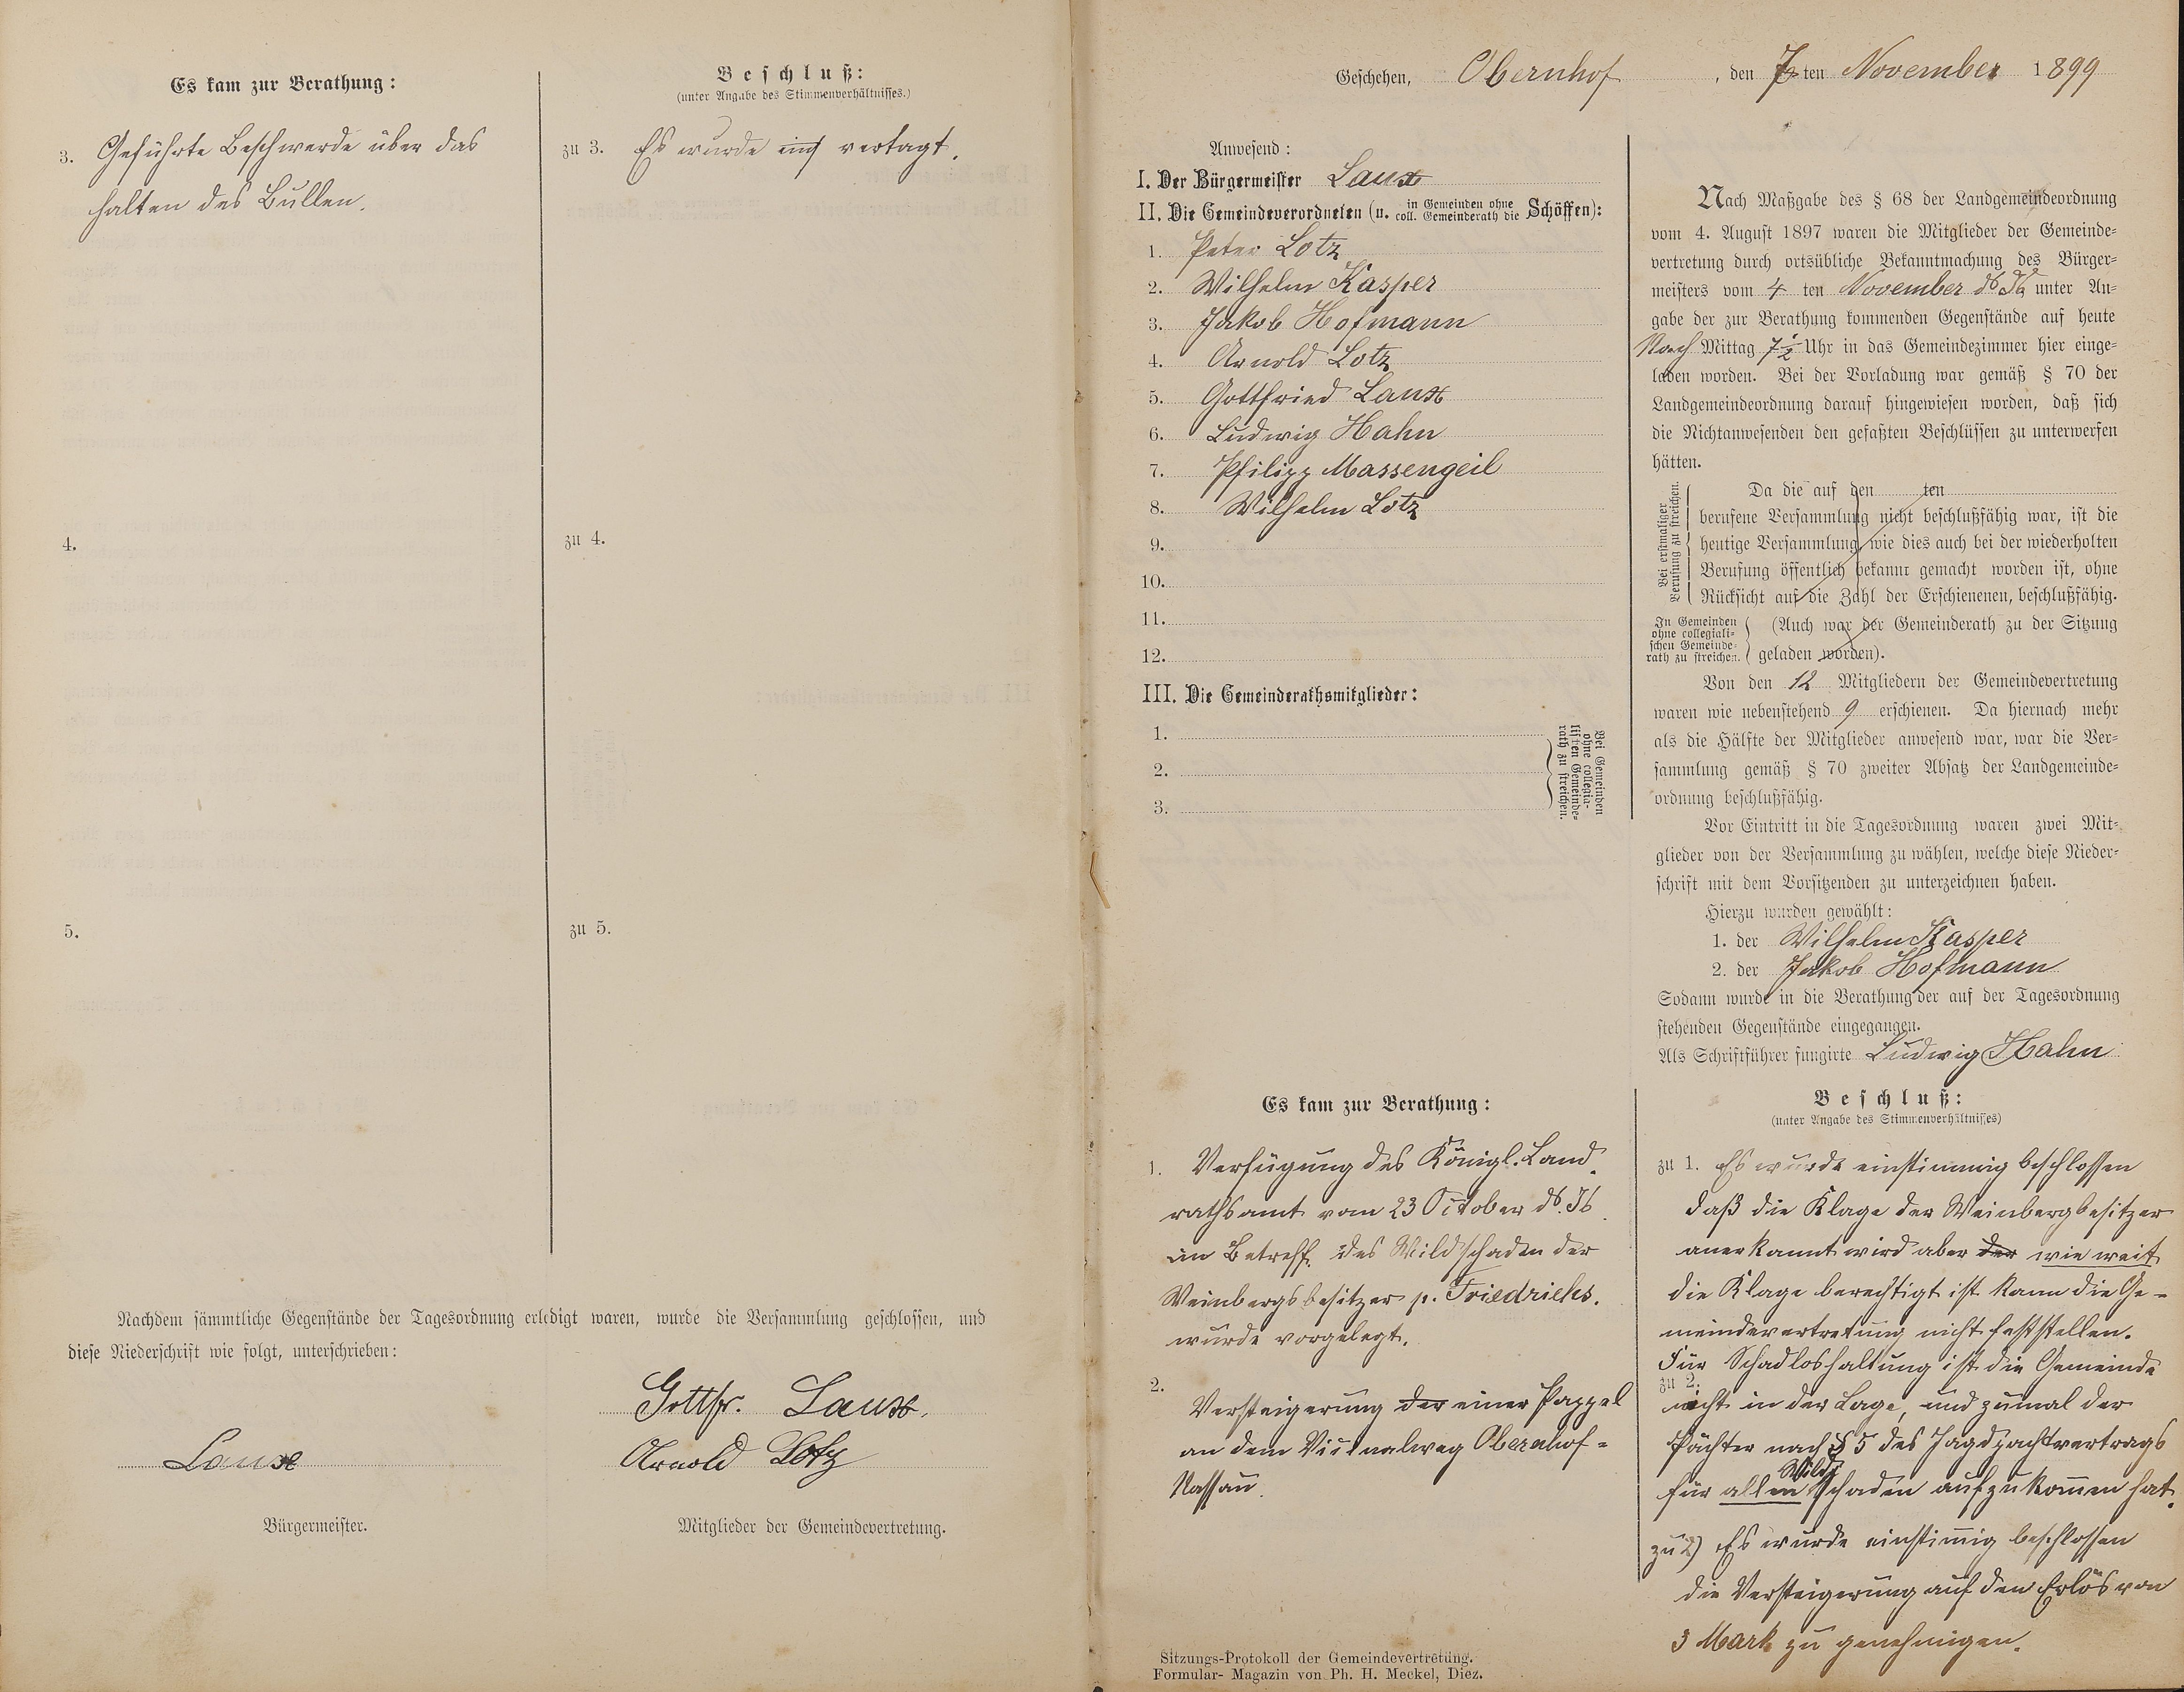 Es kam zur Berathung:
3. Geführte Beschwerde über das
halten des Bullen.
4.
5.
Beschluß:
(unter Angabe des Stimmenverhältnisses.)
zu 3. Es wurde vertagt.
zu 4.
zu 5.
Nachdem sämmtliche Gegenstände der Tagesordnung erledigt waren, wurde die Versammlung geschlossen, und
diese Niederschrift wie folgt, unterschrieben:
Gottfr. Laux.
Laux
Arnold Lotz
Bürgermeister.
Mitglieder der Gemeindevertretung.
Geschehen, Obernhof, den 7ten November 1899
Anwesend:
I. Der Bürgermeister Laux
II. Die Gemeindeverordneten (u. in Gemeinden ohne coll. Gemeinderath die Schöffen):
1. Peter Lotz
2. Wilhelm Kasper
3. Jakob Hofmann
4. Arnold Lotz
5. Gottfried Laux
6. Ludwig Hahn
7. Philipp Massengeil
8. Wilhelm Lotz
9.
10.
11.
12.
III. Die Gemeinderathsmitglieder:
1.
2.
3.
Bei Gemeinden
ohne collegia-
lischen Gemeinde-
rath zu streichen.
Nach Maßgabe des § 68 der Landgemeindeordnung
vom 4. August 1897 waren die Mitglieder der Gemeinde-
vertretung durch ortsübliche Bekanntmachung des Bürger-
meisters vom 4 ten November ds Js unter An-
gabe der zur Berathung kommenden Gegenstände auf heute
Nach Mittag 7 1/2 Uhr in das Gemeindezimmer hier einge-
laden worden. Bei der Vorladung war gemäß § 70 der
Landgemeindeordnung darauf hingewiesen worden, daß sich
die Nichtanwesenden den gefaßten Beschlüssen zu unterwerfen
hätten.
Bei erstmaliger
Berufung zu streichen.
Da die auf den ten
berufene Versammlung nicht beschlußfähig war, ist die
heutige Versammlung, wie dies auch bei der wiederholten
Berufung öffentlich bekannt gemacht worden ist, ohne
Rücksicht auf die Zahl der Erschienenen, beschlußfähig.
In Gemeinden
ohne collegiali-
schen Gemeinde-
rath zu streichen.
(Auch war der Gemeinderath zu der Sitzung
geladen worden).
Von den 12 Mitgliedern der Gemeindevertretung
waren wie nebenstehend 9 erschienen. Da hiernach mehr
als die Hälfte der Mitglieder anwesend war, war die Ver-
sammlung gemäß § 70 zweiter Absatz der Landgemeinde-
ordnung beschlußfähig.
Vor Eintritt in die Tagesordnung waren zwei Mit-
glieder von der Versammlung zu wählen, welche diese Nieder-
schrift mit dem Vorsitzenden zu unterzeichnen haben.
Hierzu wurden gewählt:
1. der Wilhelm Kasper
2. der Jakob Hofmann
Sodann wurde in die Berathung der auf der Tagesordnung
stehenden Gegenstände eingegangen.
Als Schriftführer fungirte Ludwig Hahn
Es kam zur Berathung:
1. Verfügung des Königl. Land
rathsamt vom 23 October ds. Js
im Betreff. des Wildschaden der
Weinbergsbesitzer p. Friedrichs.
wurde vorgelegt.
2.
Versteigerung der einer Pappel
an dem Vicinalweg Obernhof-
Nassau.
Beschluß:
(unter Angabe des Stimmenverhältnisses)
zu 1. Es wurde einstimmig beschlossen
daß die Klage der Weinbergbesitzer
anerkannt wird aber der wie weit
die Klage berechtigt ist kann die Ge-
meindevertretung nicht feststellen.
Für Schadloshaltung ist die Gemeinde
zu 2.
nicht in der Lage, und zumal der
Pächter nach § 5 des Jagdpachtvertrags
für allen Wildschaden aufzukommen hat.
zu 2) Es wurde einstimig beschlossen
die Versteigerung auf den Erlös von
3 Mark zu genehmigen.
Sitzungs-Protokoll der Gemeindevertretung.
Formular- Magazin von Ph. H. Meckel, Diez.